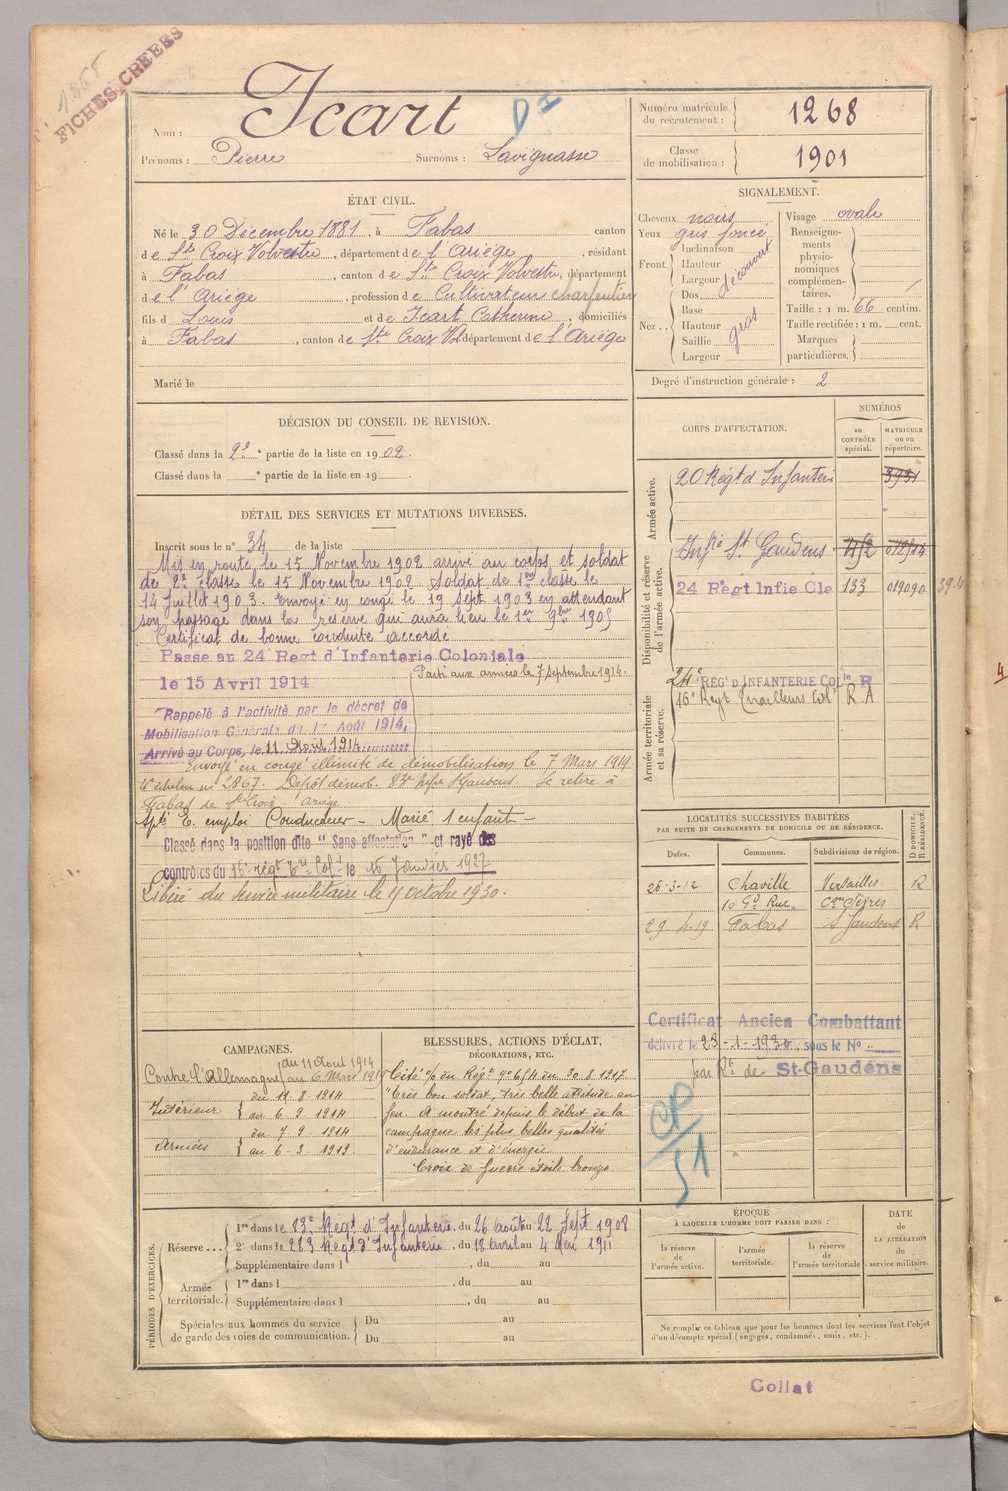 FICHES CREEES
Nom : Icart
Prénoms : Pierre Surnoms : Lavignasse
Numéro matricule du recrutement : 1268
Classe de mobilisation : 1901
ÉTAT CIVIL.
Né le 30 Décembre 1881, à Fabas canton
de Ste Croix Volvestre, département de l'Ariège, résidant
à Fabas, canton de Ste Croix Volvestre, département
de l'Ariège, profession de Cultivateur charpentier
fils d Louis et de Icart Catherine, domiciliés
à Fabas, canton de Ste Croix Vol. département de l'Ariège
Marié le
SIGNALEMENT.
Cheveux noirs
Yeux gris foncé
Front Inclinaison
Hauteur
Largeur
découvert
Nez Dos
Base
Hauteur
Saillie
Largeur
gros
Visage ovale
Renseignements physionomiques complémentaires.
Taille : 1 m. 66 centim.
Taille rectifiée : 1 m. cent.
Marques particulières.
Degré d'instruction générale : 2
DÉCISION DU CONSEIL DE REVISION.
Classé dans la 2e partie de la liste en 1902.
Classé dans la e partie de la liste en 19 .
DÉTAIL DES SERVICES ET MUTATIONS DIVERSES.
Inscrit sous le n° 34 de la liste
Mis en route le 15 Novembre 1902 arrivé au corps et soldat
de 2e classe le 15 Novembre 1902. Soldat de 1re classe le
14 Juillet 1903. Envoyé en congé le 19 Sept 1903 en attendant
son passage dans la réserve qui aura lieu le 1er 9bre 1905
Certificat de bonne conduite accordé
Passe au 24 Regt d'Infanterie Coloniale
le 15 Avril 1914
Parti aux armées le 7 septembre 1914.
Rappelé à l'activité par le décret de
Mobilisation Générale du 1er Août 1914,
Arrivé au Corps, le 11 Août 1914
Envoyé en congé illimité de démobilisation le 7 Mars 1919
échelon n° 2867. Dépôt démob. 83e Infie St Gaudens. Se retire à
Fabas de Ste Croix Ariège
emploi Conducteur - Marié 1 enfant -
Classé dans la position dite "Sans affectation" et rayé des
contrôles du 16e régt Col. le 15 Janvier 1927
Libéré du service militaire le octobre 1930.
CORPS D'AFFECTATION.
NUMÉROS
au CONTRÔLE spécial.
MATRICULE ou au répertoire.
Armée active.
20 Régt d'Infanterie 3931
Disponibilité et réserve de l'armée active.
Infie St Gaudens
24 Régt Infie Cle 133 019090
Armée territoriale et sa réserve.
24e RÉGt D'INFANTERIE COLle R
16e Régt Tirailleurs Col. R.A
LOCALITÉS SUCCESSIVES HABITÉES
PAR SUITE DE CHANGEMENTS DE DOMICILE OU DE RÉSIDENCE.
Dates. Communes. Subdivisions de région. D DOMICILE. R RÉSIDENCE.
26-3-12 Chaville Versailles R
10 Gde Rue Con Sèvres
29-4-19 Fabas St Gaudens R
Certificat Ancien Combattant
délivré le sous le N°
par Rt de St-Gaudens
CAMPAGNES.
Contre l'Allemagne du 11 Août 1914 au 6 Mars 1919
Intérieur du 11 8 1914
au 6 9 1914
Armées du 7 9 1914
au 6-3-1919.
BLESSURES, ACTIONS D'ÉCLAT,
DÉCORATIONS, ETC.
Cité O/ du Régt n° 654 du 30.8.1917.
"Très bon soldat, très belle attitude au
feu. A montré depuis le début de la
campagne les plus belles qualités
d'endurance et d'énergie.
Croix de guerre étoile bronze.
PÉRIODES D'EXERCICES.
Réserve ... 1re dans le 83e Régt d'Infanterie, du 26 août au 22 Sept 1908
2e dans le 283 Régt d'Infanterie, du 18 avril au 4 Mai 1911
Supplémentaire dans l , du au
Armée territoriale. 1re dans l , du au
Supplémentaire dans l , du au
Spéciales aux hommes du service de garde des voies de communication. Du au
Du au
ÉPOQUE
À LAQUELLE L'HOMME DOIT PASSER DANS :
la réserve de l'armée active.
l'armée territoriale.
la réserve de l'armée territoriale.
DATE de LA LIBÉRATION du service militaire.
Ne remplir ce tableau que pour les hommes dont les services font l'objet
d'un décompte spécial (engagés, condamnés, omis, etc.).
Collat